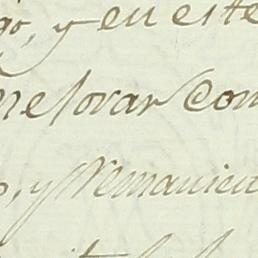 go, y en este
resorar con
o, y Remanien